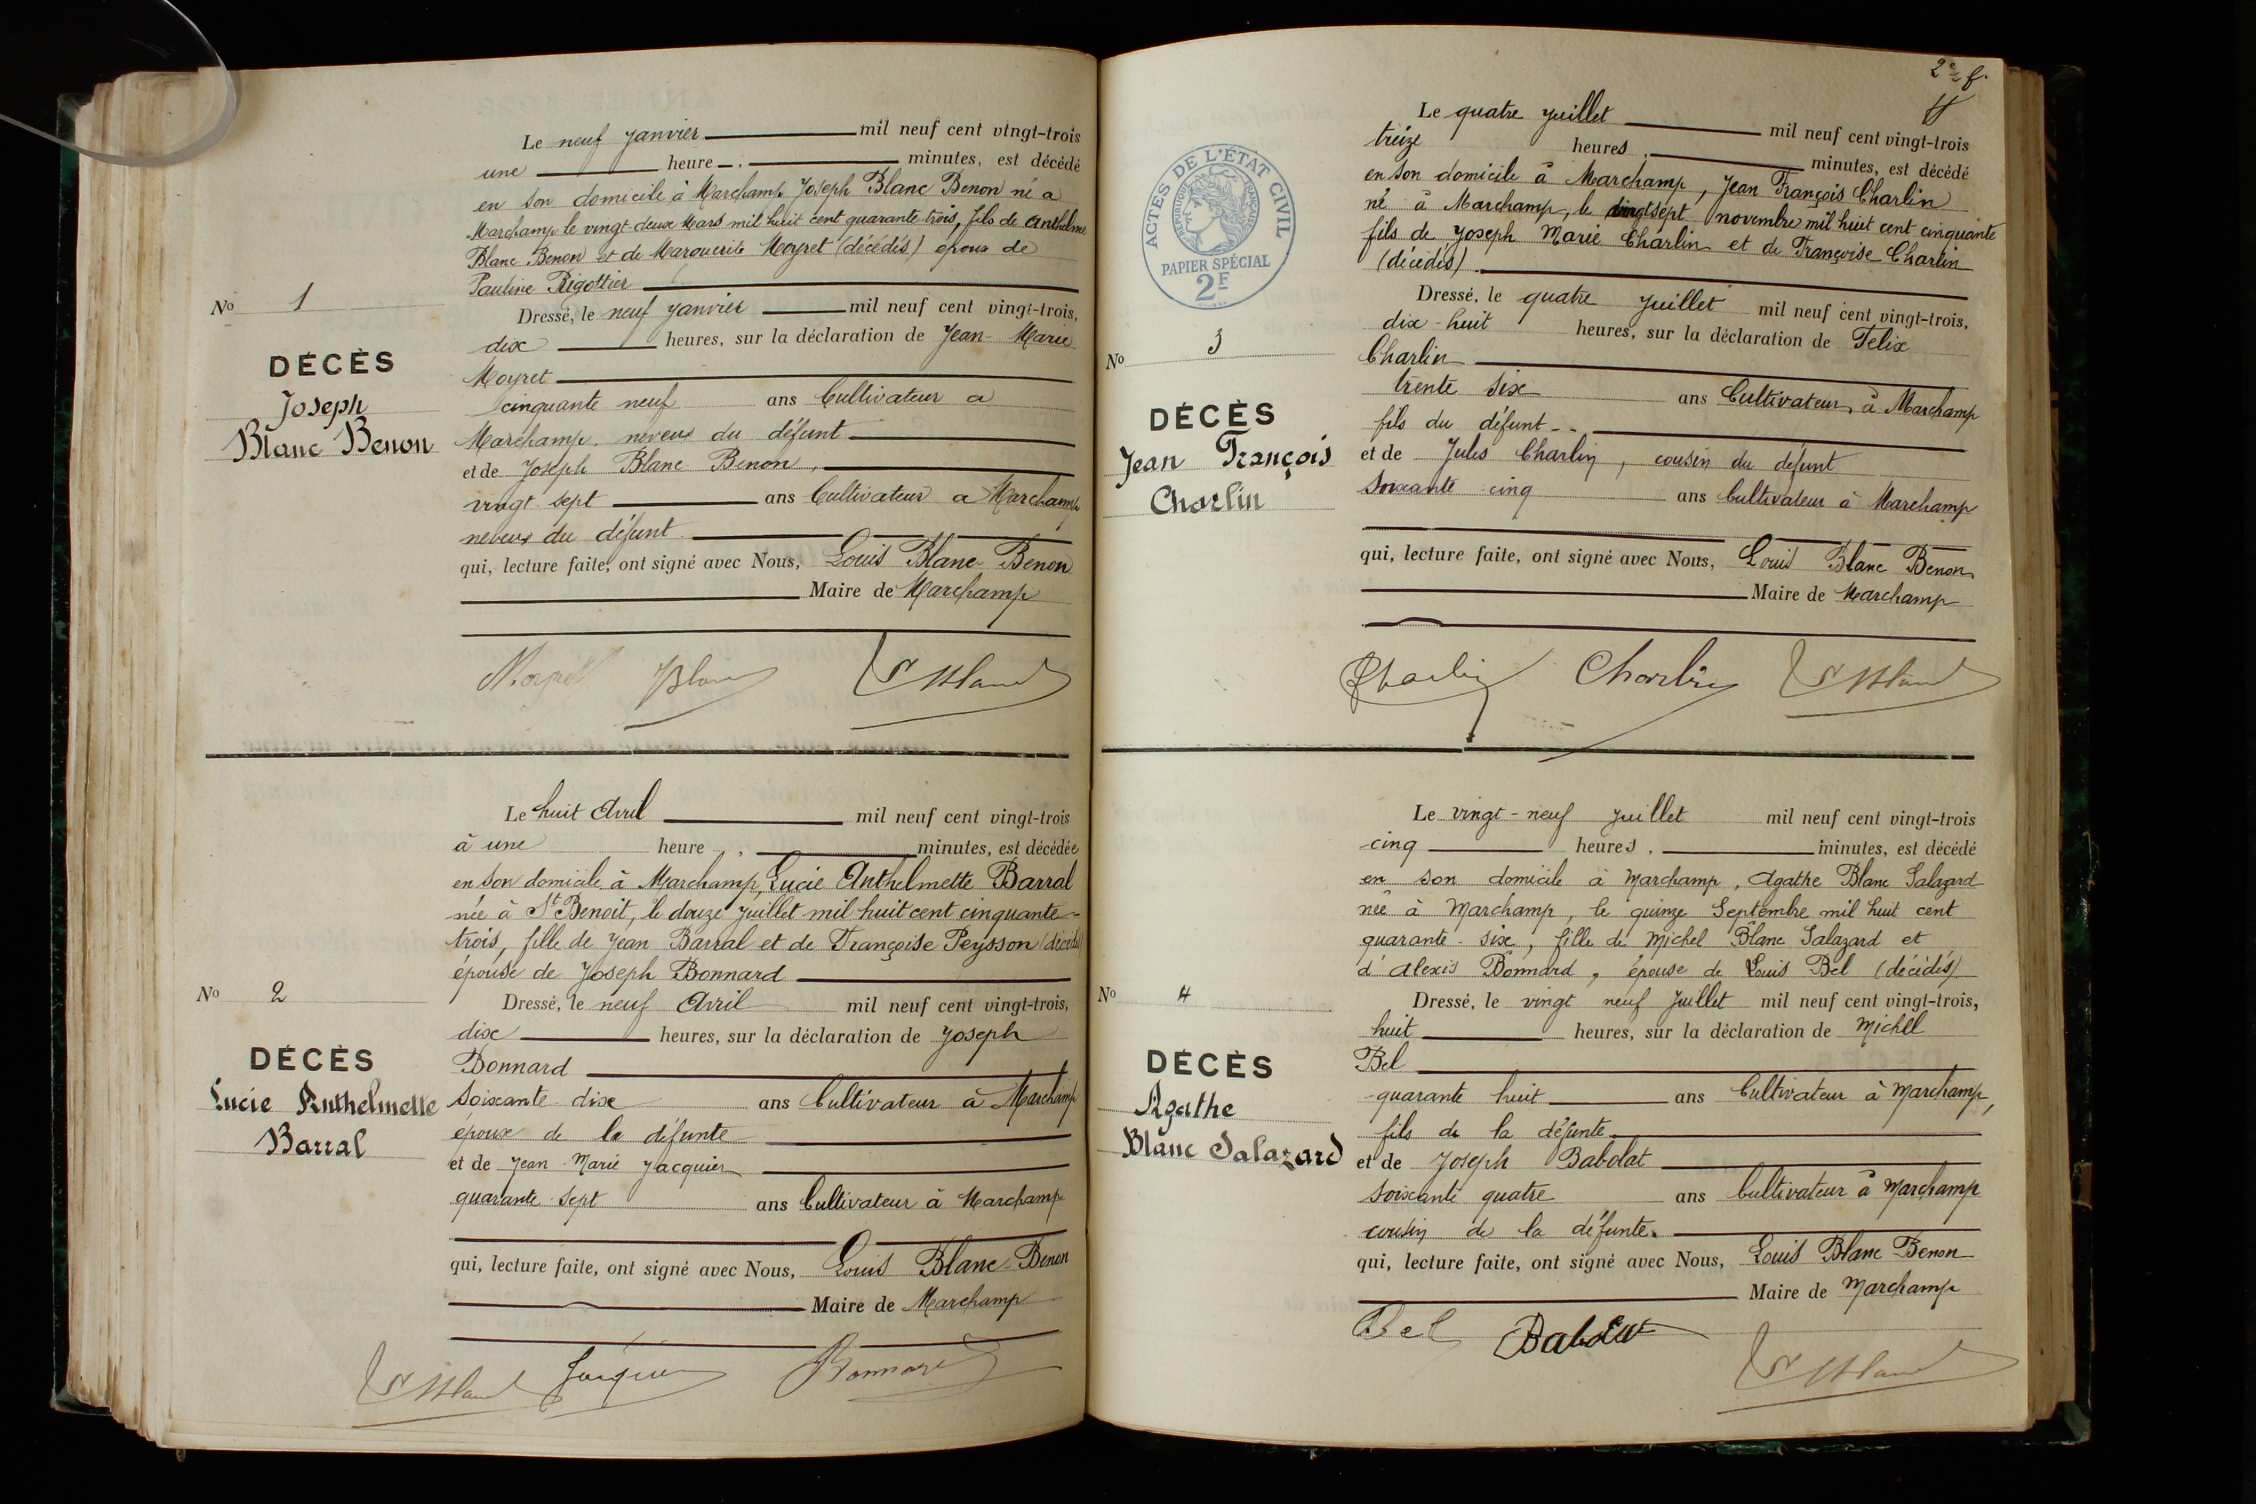 Le neuf Janvier mil neuf cent vingt-trois
une heure minutes, est décédé
en son domicile à Marchamp Joseph Blanc Benon né a
Marchamp le vingt deux Mars mil huit cent quarante trois, fils de Anthelme
Blanc Benon et de Marguerite Moyret (décédés) époux de
Pauline Rigottier
No 1
DÉCÈS
Joseph
Blanc Benon
Dressé, le neuf Janvier mil neuf cent vingt-trois,
dix heures, sur la déclaration de Jean-Marie
Moyret
cinquante neuf ans Cultivateur a
Marchamp. neveux du défunt
et de Joseph Blanc Benon,
vingt sept ans Cultivateur a Marchamp
neveux du défunt
qui, lecture faite, ont signé avec Nous, Louis Blanc-Benon
Maire de Marchamp
Moyret JBlanc Ls Blanc
Le huit Avril mil neuf cent vingt-trois
à une heure, minutes, est décédée
en son domicile à Marchamp, Lucie Anthelmette Barral
née à St Benoit, le douze Juillet mil huit cent cinquante-
trois, fille de Jean Barral et de Françoise Peysson (décédés)
épouse de Joseph Bonnard
No 2
DÉCÈS
Lucie Anthelmette
Barral
Dressé, le neuf Avril mil neuf cent vingt-trois,
dix heures, sur la déclaration de Joseph
Bonnard
soixante-dix ans Cultivateur à Marchamp
époux de la défunte
et de Jean-Marie Jacquier
quarante-sept ans Cultivateur à Marchamp
qui, lecture faite, ont signé avec Nous, Louis Blanc-Benon
Maire de Marchamp
Ls Blanc Jacquier Bonnard
2e f.
ACTES DE L'ÉTAT CIVIL
RÉPUBLIQUE FRANÇAISE
PAPIER SPÉCIAL
2F
Le quatre Juillet mil neuf cent vingt-trois
treize heures, minutes, est décédé
en son domicile à Marchamp, Jean François Charlin
né à Marchamp, le vingt sept novembre mil huit cent cinquante
fils de Joseph Marie Charlin et de Françoise Charlin
(décédés)
No 3
DÉCÈS
Jean François
Charlin
Dressé, le quatre Juillet mil neuf cent vingt-trois,
dix-huit heures, sur la déclaration de Felix
Charlin
trente six ans Cultivateur, à Marchamp
fils du défunt
et de Jules Charlin, cousin du défunt
soixante cinq ans Cultivateur à Marchamp
qui, lecture faite, ont signé avec Nous, Louis Blanc Benon
Maire de Marchamp
Charlin Charlin Ls Blanc
Le vingt-neuf Juillet mil neuf cent vingt-trois
cinq heures, minutes, est décédé
en son domicile à Marchamp, Agathe Blanc Salazard
née à Marchamp, le quinze Septembre mil huit cent
quarante-six, fille de Michel Blanc Salazard et
d'Alexis Bonnard, épouse de Louis Bel (décédés)
No 4
DÉCÈS
Agathe
Blanc Salazard
Dressé, le vingt neuf Juillet mil neuf cent vingt-trois,
huit heures, sur la déclaration de Michel
Bel
quarante huit ans Cultivateur à Marchamp,
fils de la défunte
et de Joseph Babolat
soixante quatre ans Cultivateur à Marchamp
cousin de la défunte.
qui, lecture faite, ont signé avec Nous, Louis Blanc Benon
Maire de Marchamp
Bel Babolat Ls Blanc